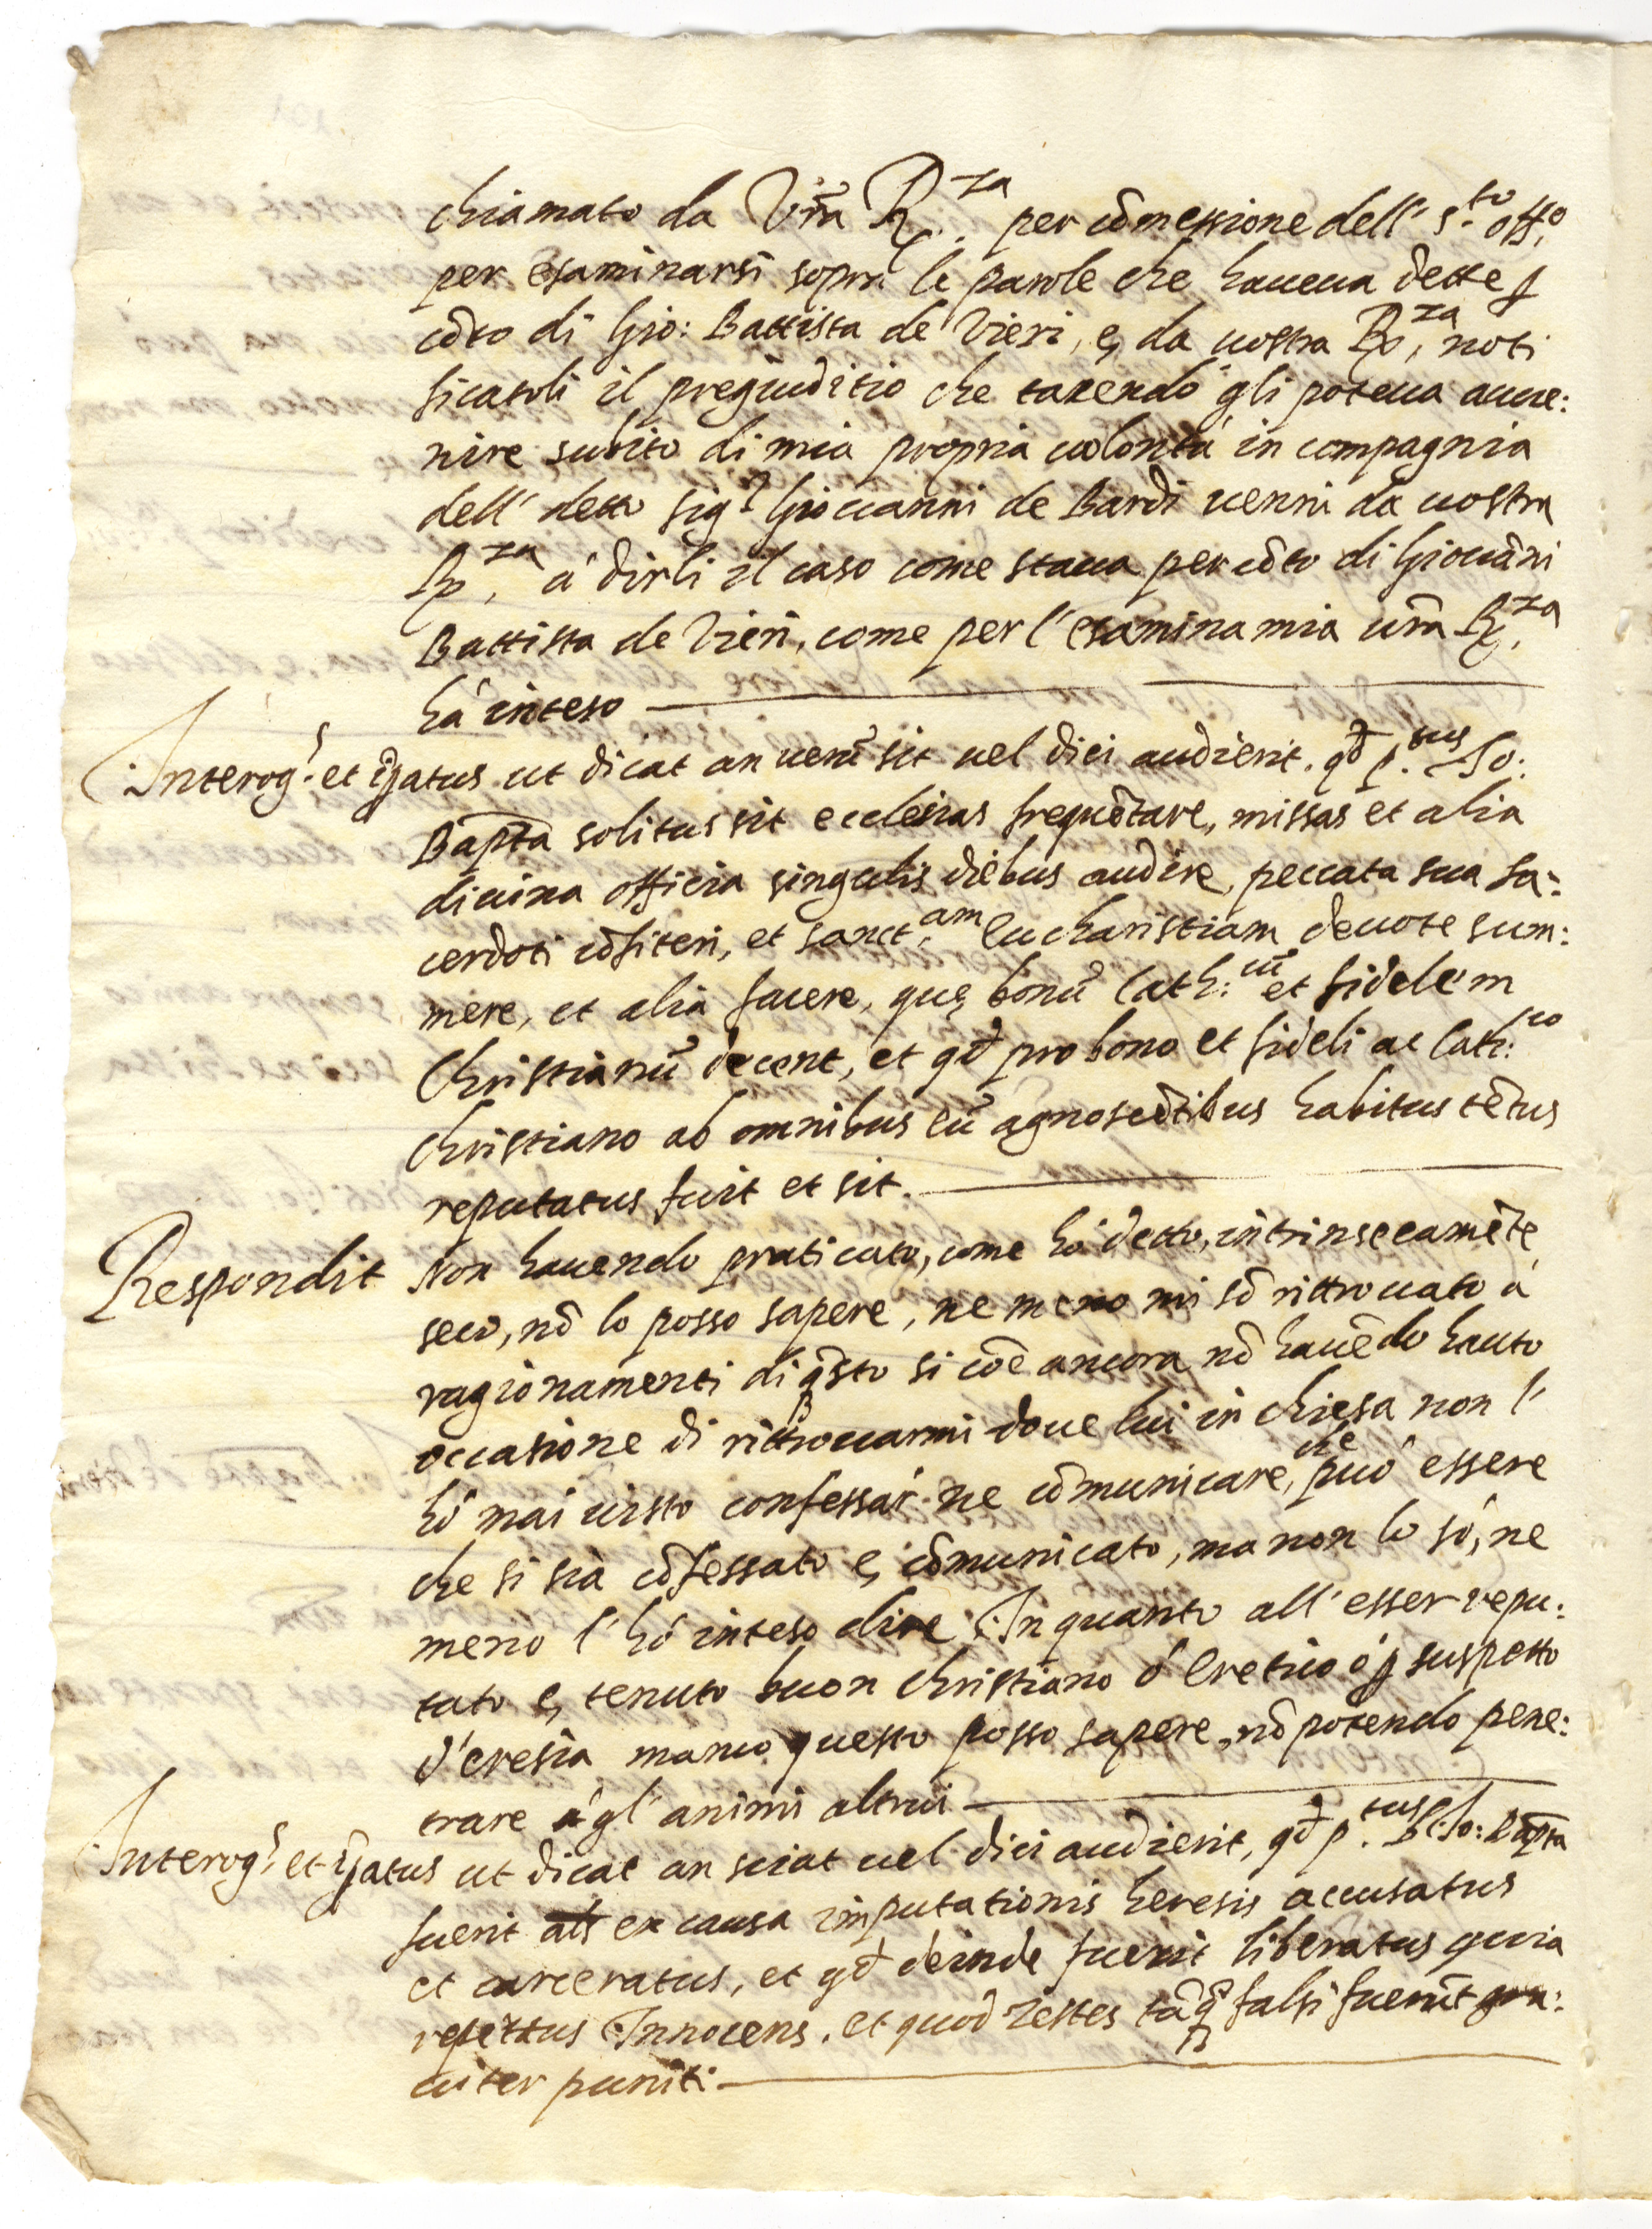 chiamato da Vr̃a R.za per cõmessione dell' s.to off.o
per esaminarsi sopra le parole che haueua dette p
cõto di Gio: Battista de Vieri, e, da uostra R.za, noti
ficatoli il pregiuditio che tacendo gli poteua auue:
nire subito di mia propria uolontà in compagnia
dell' detto sig.r Giouanni de Bardi uenni da uostra
R.za, à dirli il caso come staua per cõto di Giouãni
Battista de Vieri, come per l'esamina mia ur̃a R.za
hà inteso
Interog.s et ... ut dicat an uerũ sit uel dici audierit, qđ p.tus Jo:
Bap̃ta solitus sit ecclesias frequẽtare, missas et alia
diuina officia singulis diebus audire, peccata sua sa:
cerdoti cõfiteri, et sanct.am Eucharistiam deuote sum:
mere, et alia facere, quę bonũ Cath:cũ et fidelem
Christianũ decent, et qđ pro bono et fideli ac Cath:co
Christiano ab omnibus eũ agnoscẽtibus habitus tẽtus
reputatus fuit et sit.
Respondit Non hauendo praticato, come hò detto, intrinsecamẽte
seco, nõ lo posso sapere, ne meno mi sõ rittrouato à
ragionamenti di q̃sto si cõe ancora nõ hauẽdo hauto
occasione di rittrouarmi doue lui in chiesa non l'
hò mai uisto confessar ne cõmunicare, che può essere
che si sia cõfessato e, cõmunicato, ma non lo sò, ne
meno l'hò inteso dire In quanto all'esser repu:
tato e, tenuto buon christiano ò eretico ò p suspetto
d'eresia manco questo posso sapere, nõ potendo pene:
trare à gl'animi altrui
Interog.s et ... ut dicat an sciat uel dici audierit, qđ p.tus Jo: Bap̃ta
fuerit als ex causa imputationis heresis accusatus
et carceratus, et qđ deinde fuerit liberatus quia
repertus Innocens, et quod testes tãq̃ falsi fuerũt gra:
uiter puniti